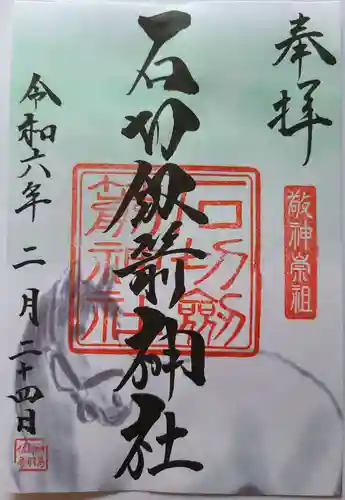 奉拝
敬神崇祖
石切剱箭神社
石切劔箭神社
令和六年二月二十四日